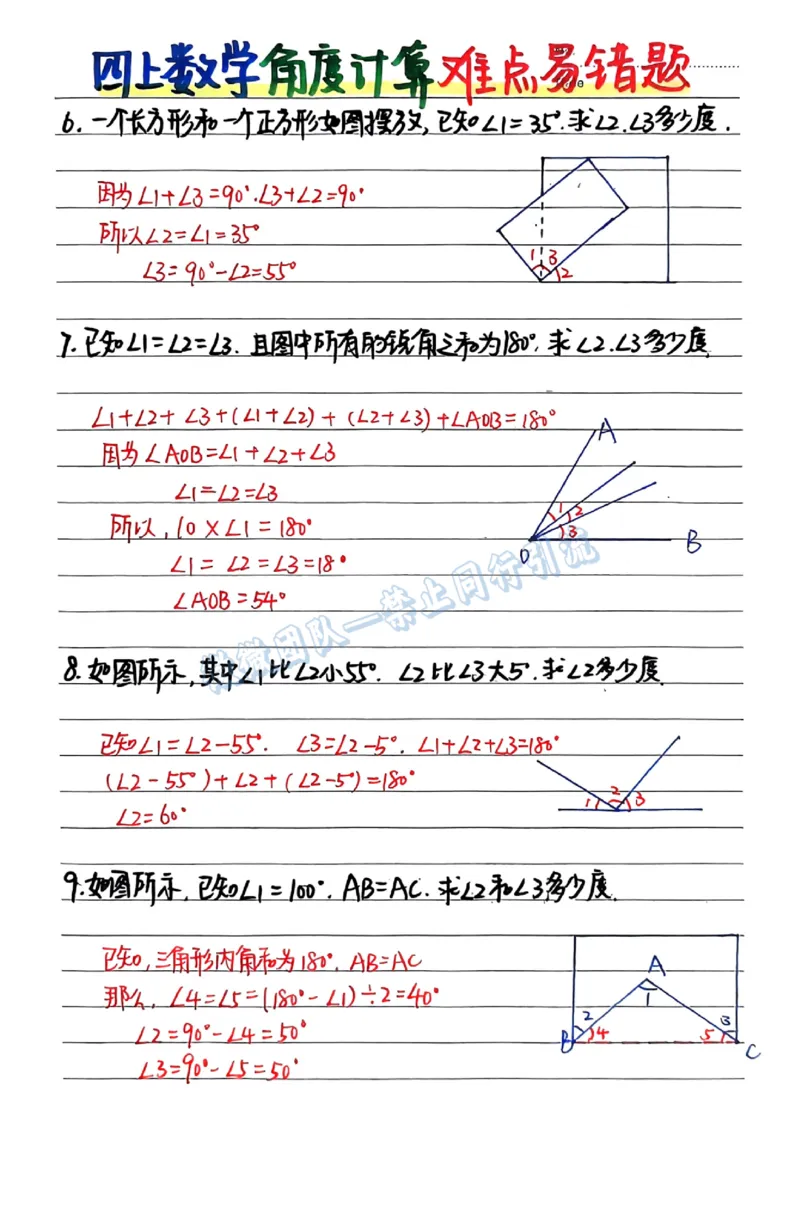 四上数学角度计算难点易错题
6.一个长方形和一个正方形如图摆放,已知∠1=35°.求∠2.∠3多少度.
因为∠1+∠3=90°.∠3+∠2=90°
所以∠2=∠1=35°
∠3=90°-∠2=55°
1 3
2
7.已知∠1=∠2=∠3.且图中所有的锐角之和为180°,求∠2.∠3多少度.
∠1+∠2+∠3+(∠1+∠2)+(∠2+∠3)+∠AOB=180°
因为∠AOB=∠1+∠2+∠3
∠1=∠2=∠3
所以,10×∠1=180°
∠1=∠2=∠3=18°
∠AOB=54°
A
1 2
3
O
B
团队一禁止同行引流
8.如图所示,其中∠1比∠2小55°.∠2比∠3大5°.求∠2多少度.
已知∠1=∠2-55°.∠3=∠2-5°.∠1+∠2+∠3=180°
(∠2-55°)+∠2+(∠2-5°)=180°
∠2=60°
1 2 3
9.如图所示,已知∠1=100°.AB=AC.求∠2和∠3多少度.
已知,三角形内角和为180°.AB=AC
那么,∠4=∠5=(180°-∠1)÷2=40°
∠2=90°-∠4=50°
∠3=90°-∠5=50°
A
1
2 3
B 4 5 C